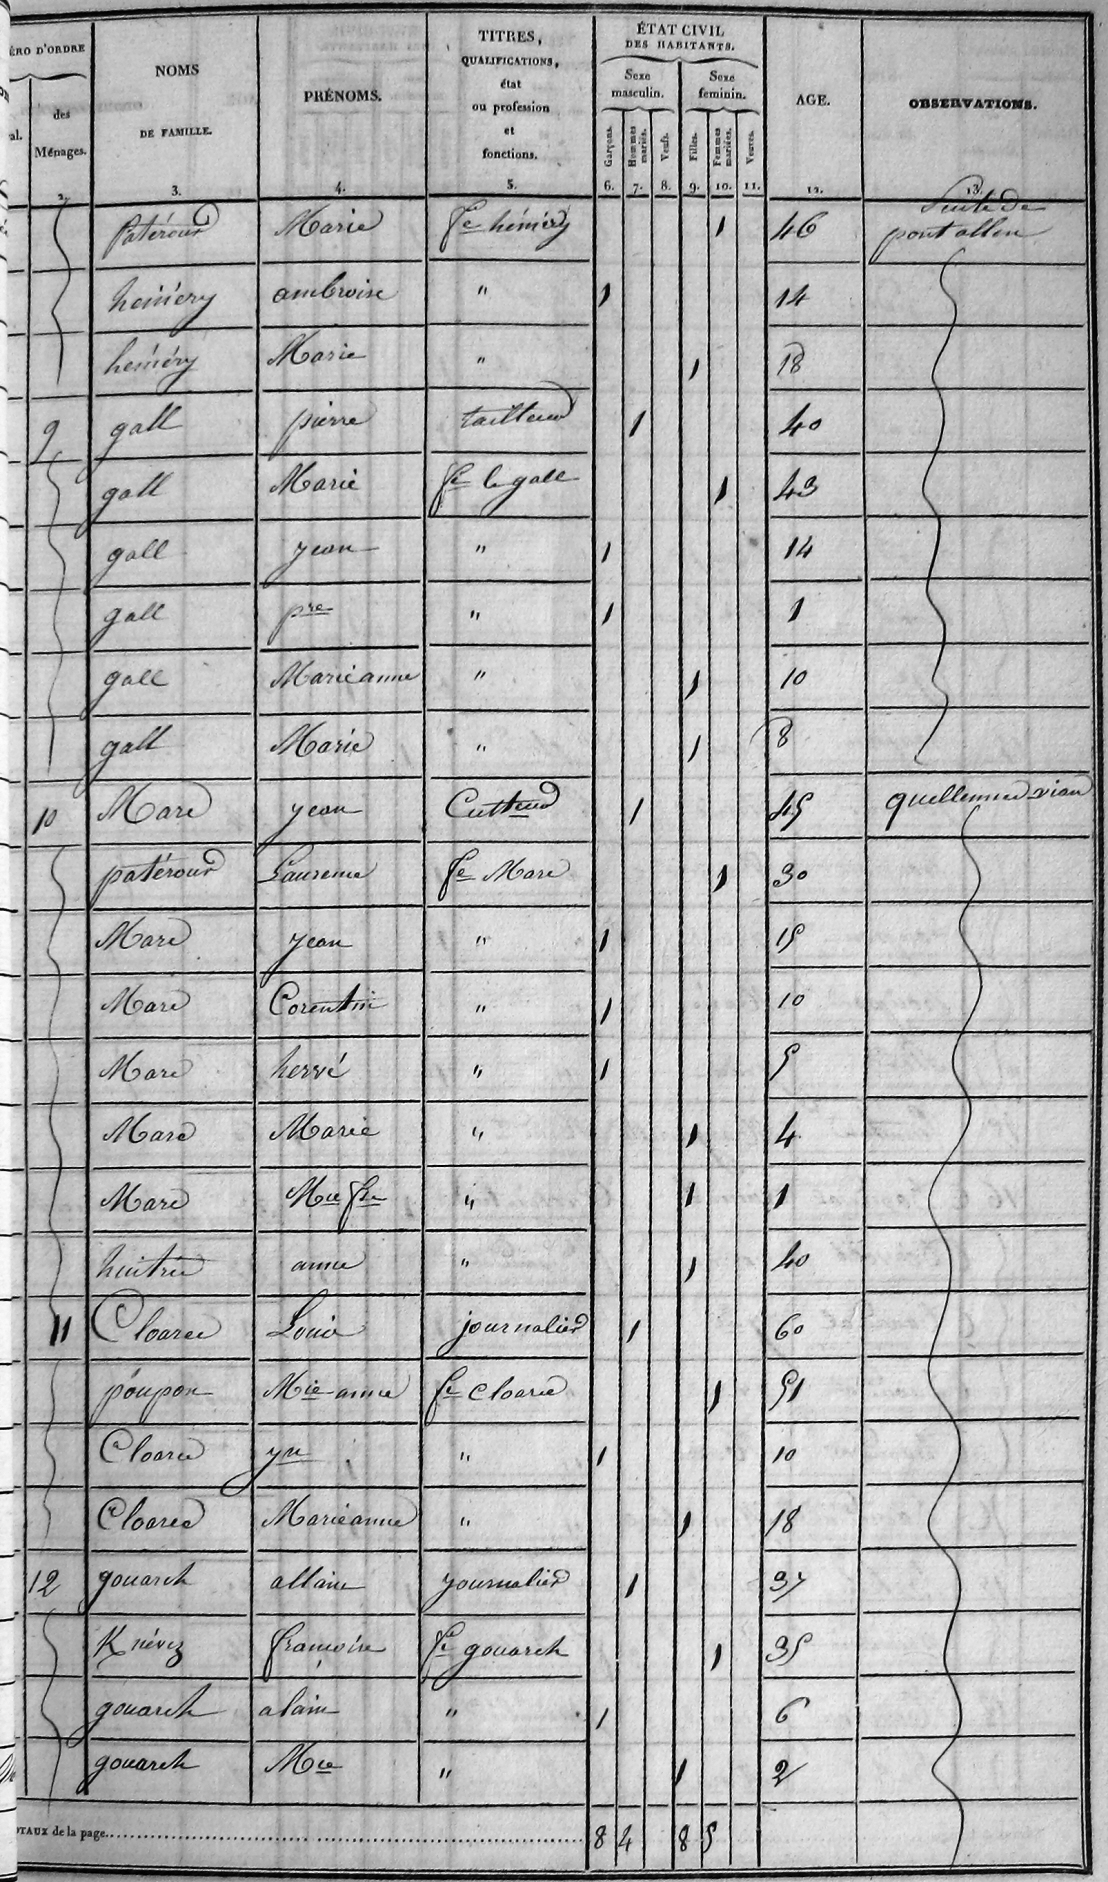 ÉRO D'ORDRE
al.
des
Ménages.
2.
NOMS
DE FAMILLE.
3.
PRÉNOMS.
4.
TITRES,
QUALIFICATIONS,
état
ou profession
et
fonctions.
5.
ÉTAT CIVIL
DES HABITANTS.
Sexe
masculin.
Sexe
feminin.
Garçons.
Hommes mariés.
Veufs.
Filles.
Femmes mariées.
Veuves.
6. 7. 8. 9. 10. 11.
AGE.
12.
OBSERVATIONS.
13.
Patérour Marie fe héméry 1 46 Suite de
pont allen
héméry ambroise " 1 14
héméry Marie " 1 18
9 gall pierre tailleur 1 40
gall Marie fe le gall 1 43
gall yean " 1 14
gall pre " 1 1
gall Marieanne " 1 10
gall Marie " 1 8
10 Marc yean Cultteur 1 45 quellennec vian
patérour Laurence fe Marc 1 30
Marc yean " 1 15
Marc Corentin " 1 10
Marc hervé " 1 5
Marc Marie " 1 4
Marc Mie fse " 1 1
anne " 1 40
11 Cloarec Louis journalier 1 60
poupon Mie anne fe Cloarec 1 51
Cloarec yn " 1 10
Cloarec Marieanne " 1 18
12 gouarch allain yournalier 1 37
Knévez francoise fe gouarch 1 35
gouarch alain " 1 6
gouarch Mie " 1 2
OTAUX de la page 8 4 8 5